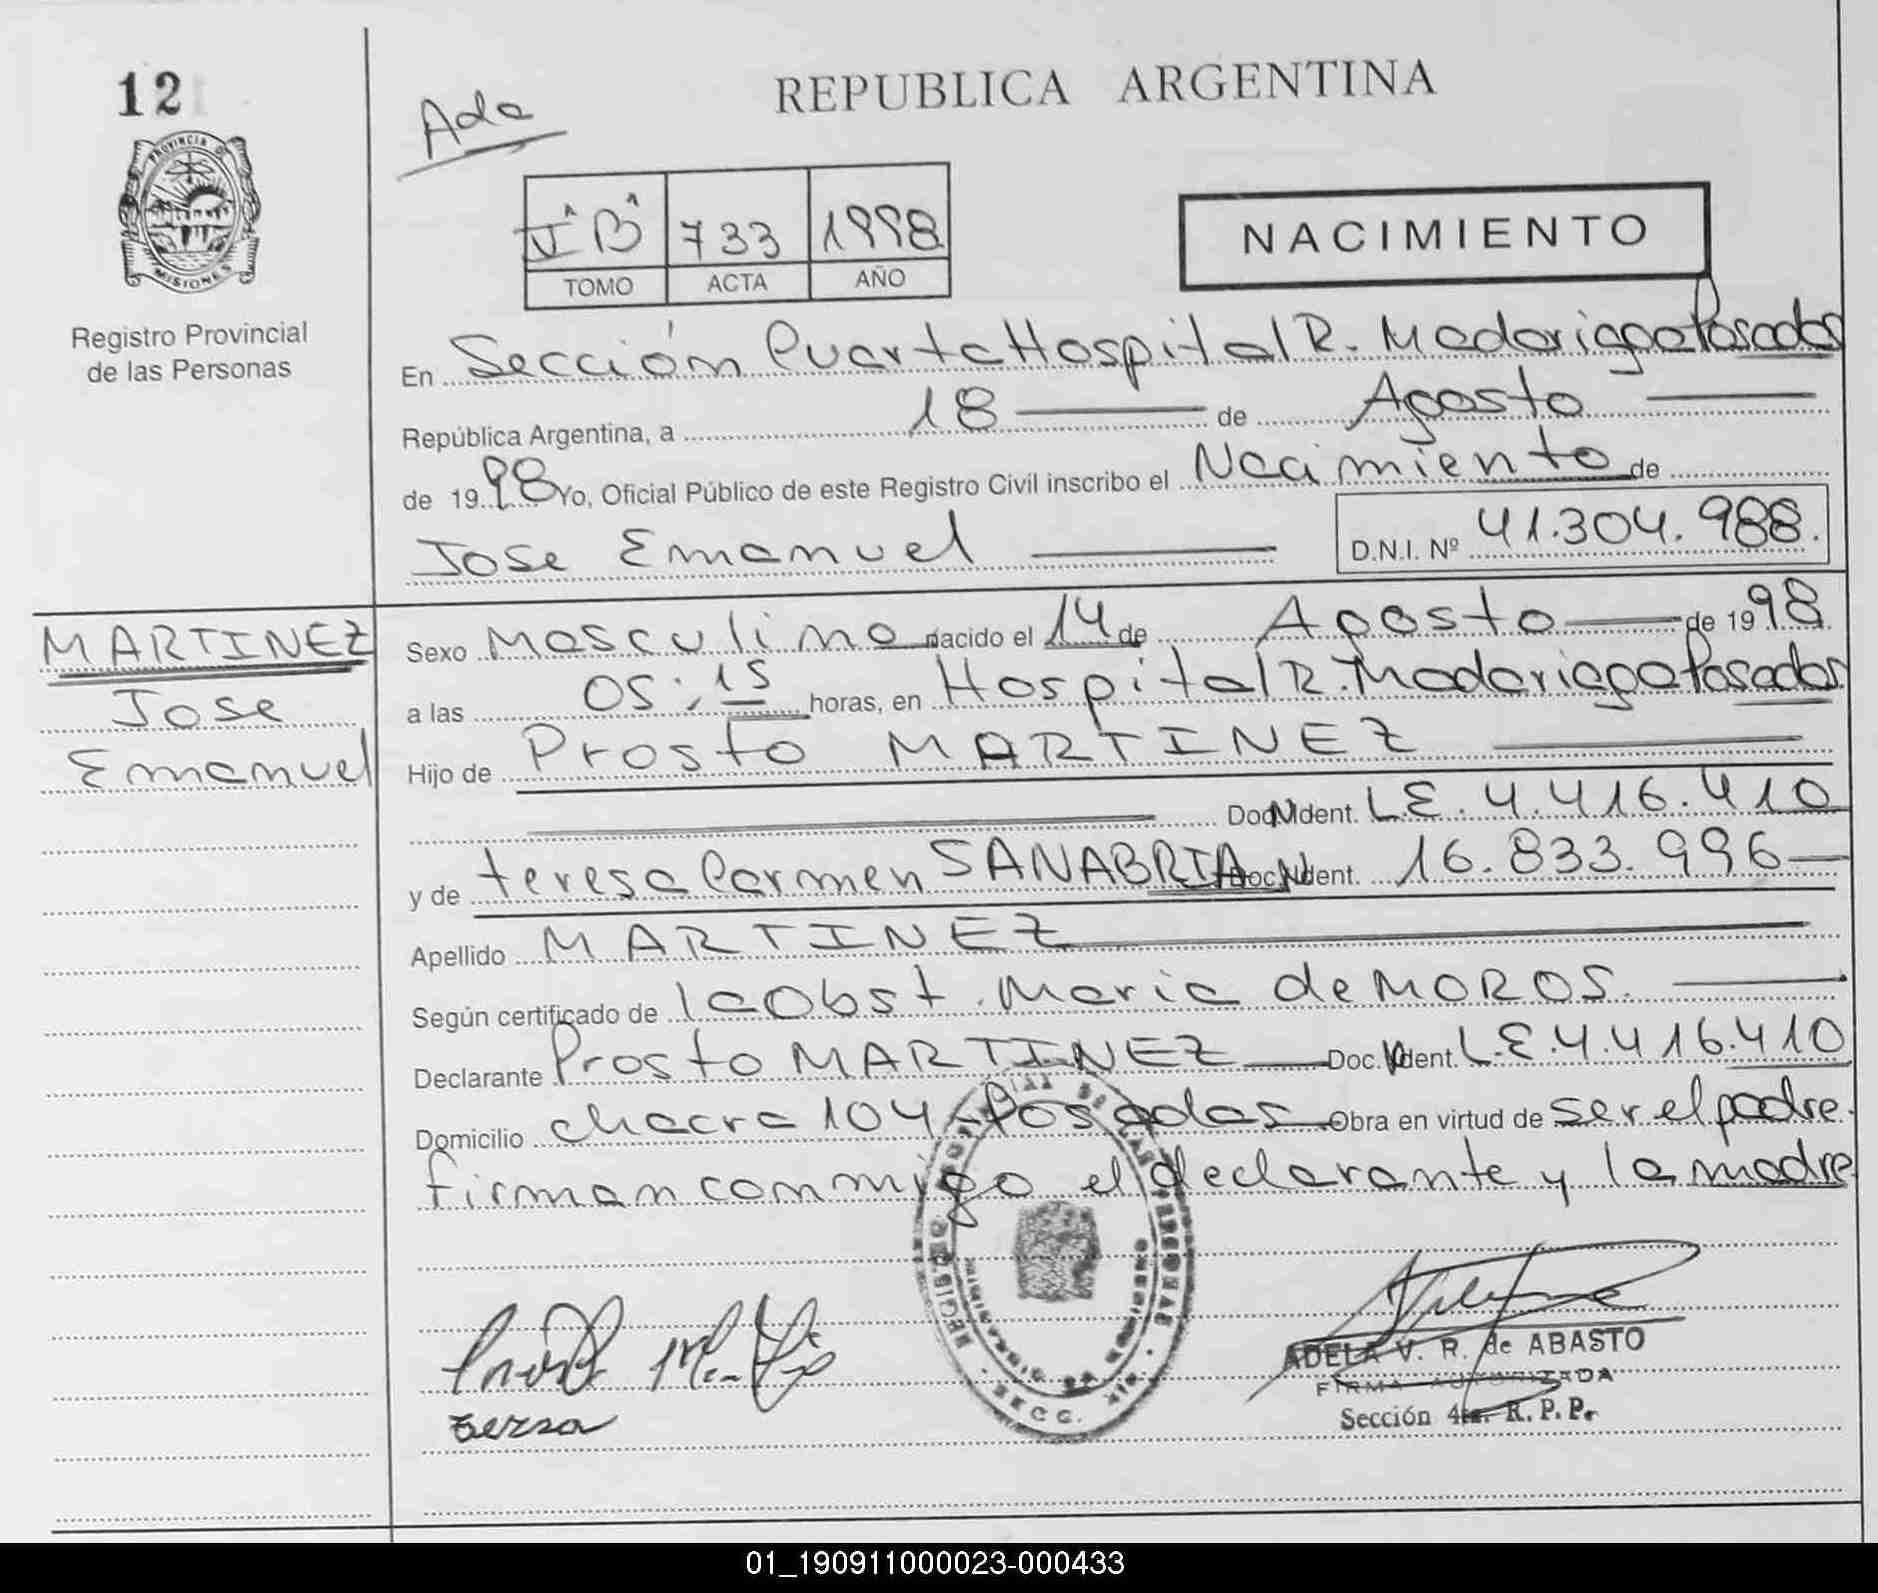 12
Ada
REPUBLICA ARGENTINA
PROVINCIA DE
MISIONES
Registro Provincial
de las Personas
733 1998
TOMO ACTA AÑO
NACIMIENTO
En Sección Cuarta Hospital R. Madariaga Posadas
República Argentina, a 18 de Agosto
de 1998 Yo, Oficial Público de este Registro Civil inscribo el Nacimiento de
Jose Emanuel D.N.I. Nº 41.304.988.
MARTINEZ
Jose
Emanuel
Sexo Masculino nacido el 14 de Agosto de 1998
a las 05:15 horas, en Hospital R. Madariaga Posadas
Hijo de Prosto MARTINEZ
Doc. Ident. L.E. 4.416.410
y de teresa Carmen SANABRIA Doc. Ident. 16.833.996
Apellido MARTINEZ
Según certificado de la Obst. Maria de MOROS.
Declarante Prosto MARTINEZ Doc. Ident. L.E. 4.416.410
Domicilio chacra 104 - Posadas Obra en virtud de ser el padre.
firman conmigo el declarante y la madre
ADELA V. R. de ABASTO
FIRMA AUTORIZADA
Sección 4ta. R.P.P.
01_190911000023-000433